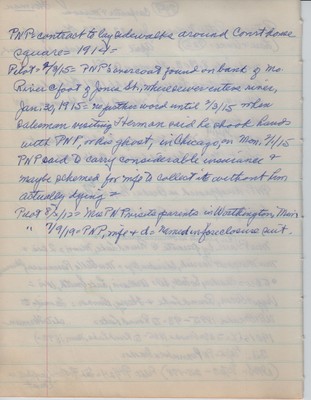 PNP= contract to lay sidewalk around Court house
square= 1914=
Pilot= 2/9/15= PNP's overcoat found on bank of Mo
River foot of Jones St, where sewer entrs river,
Jan. 30, 1915= no further word until 2/3/15 when
salesman visiting Herman said he shook hands
with PNP, or his ghost, in Chicago, on Mon. 2/1/15
PNP said to carry considerable insurance &
maybe schemed for wife to collect it without him
actually dying=
Pilot 8/3/12= Mrs PNP visits parents in Worthington, Minn.
" 7/9/19= PNP, wife & d= named in foreclosure suit.